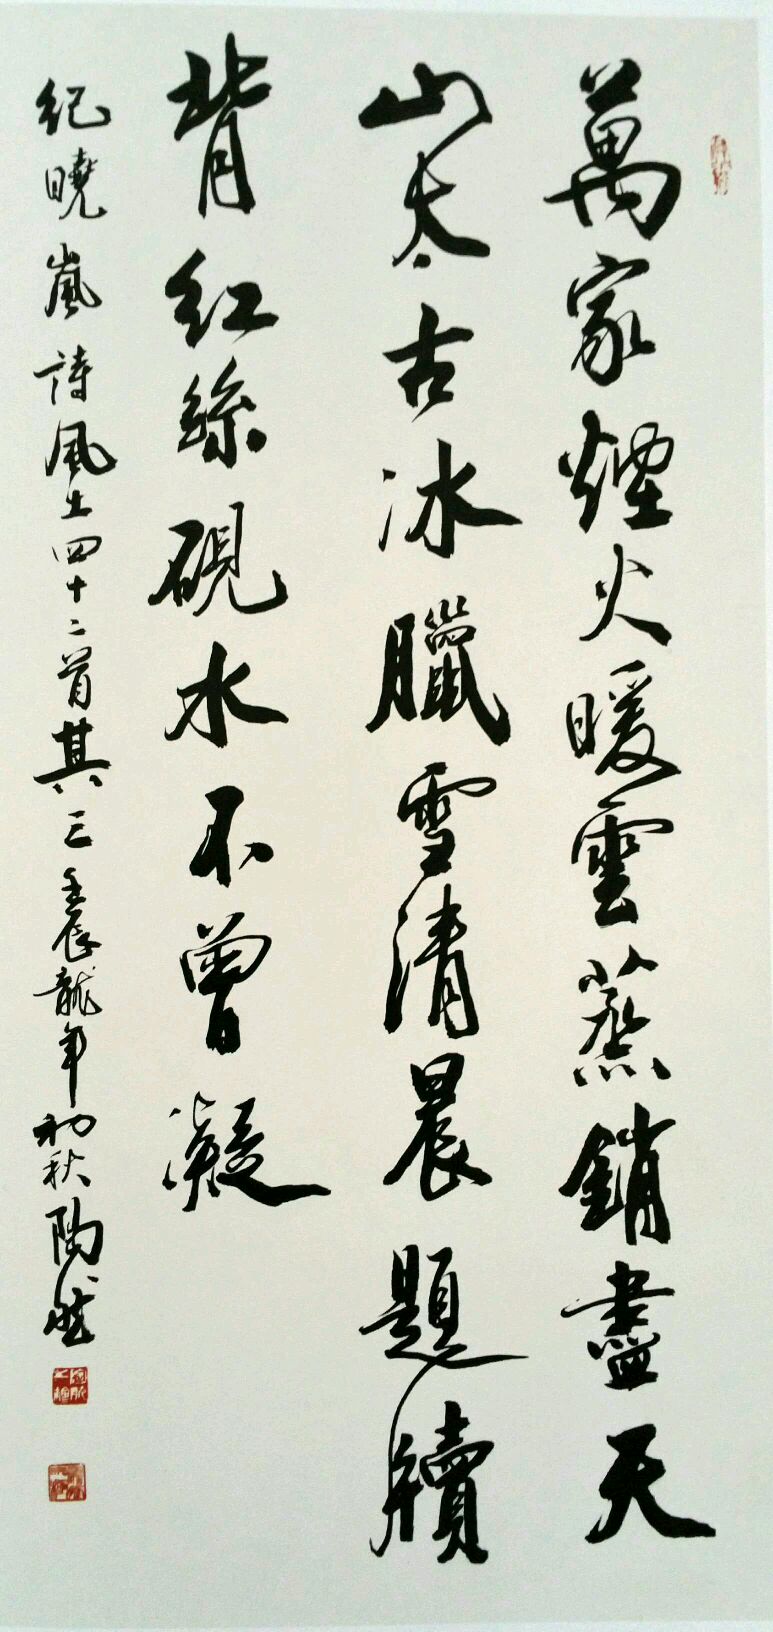 萬家煙火暖雲蒸銷盡天
山太古冰臘雪清晨題牘
背紅絲硯水不曾凝
紀曉嵐詩風土四十二首其三壬辰龍年初秋陶然